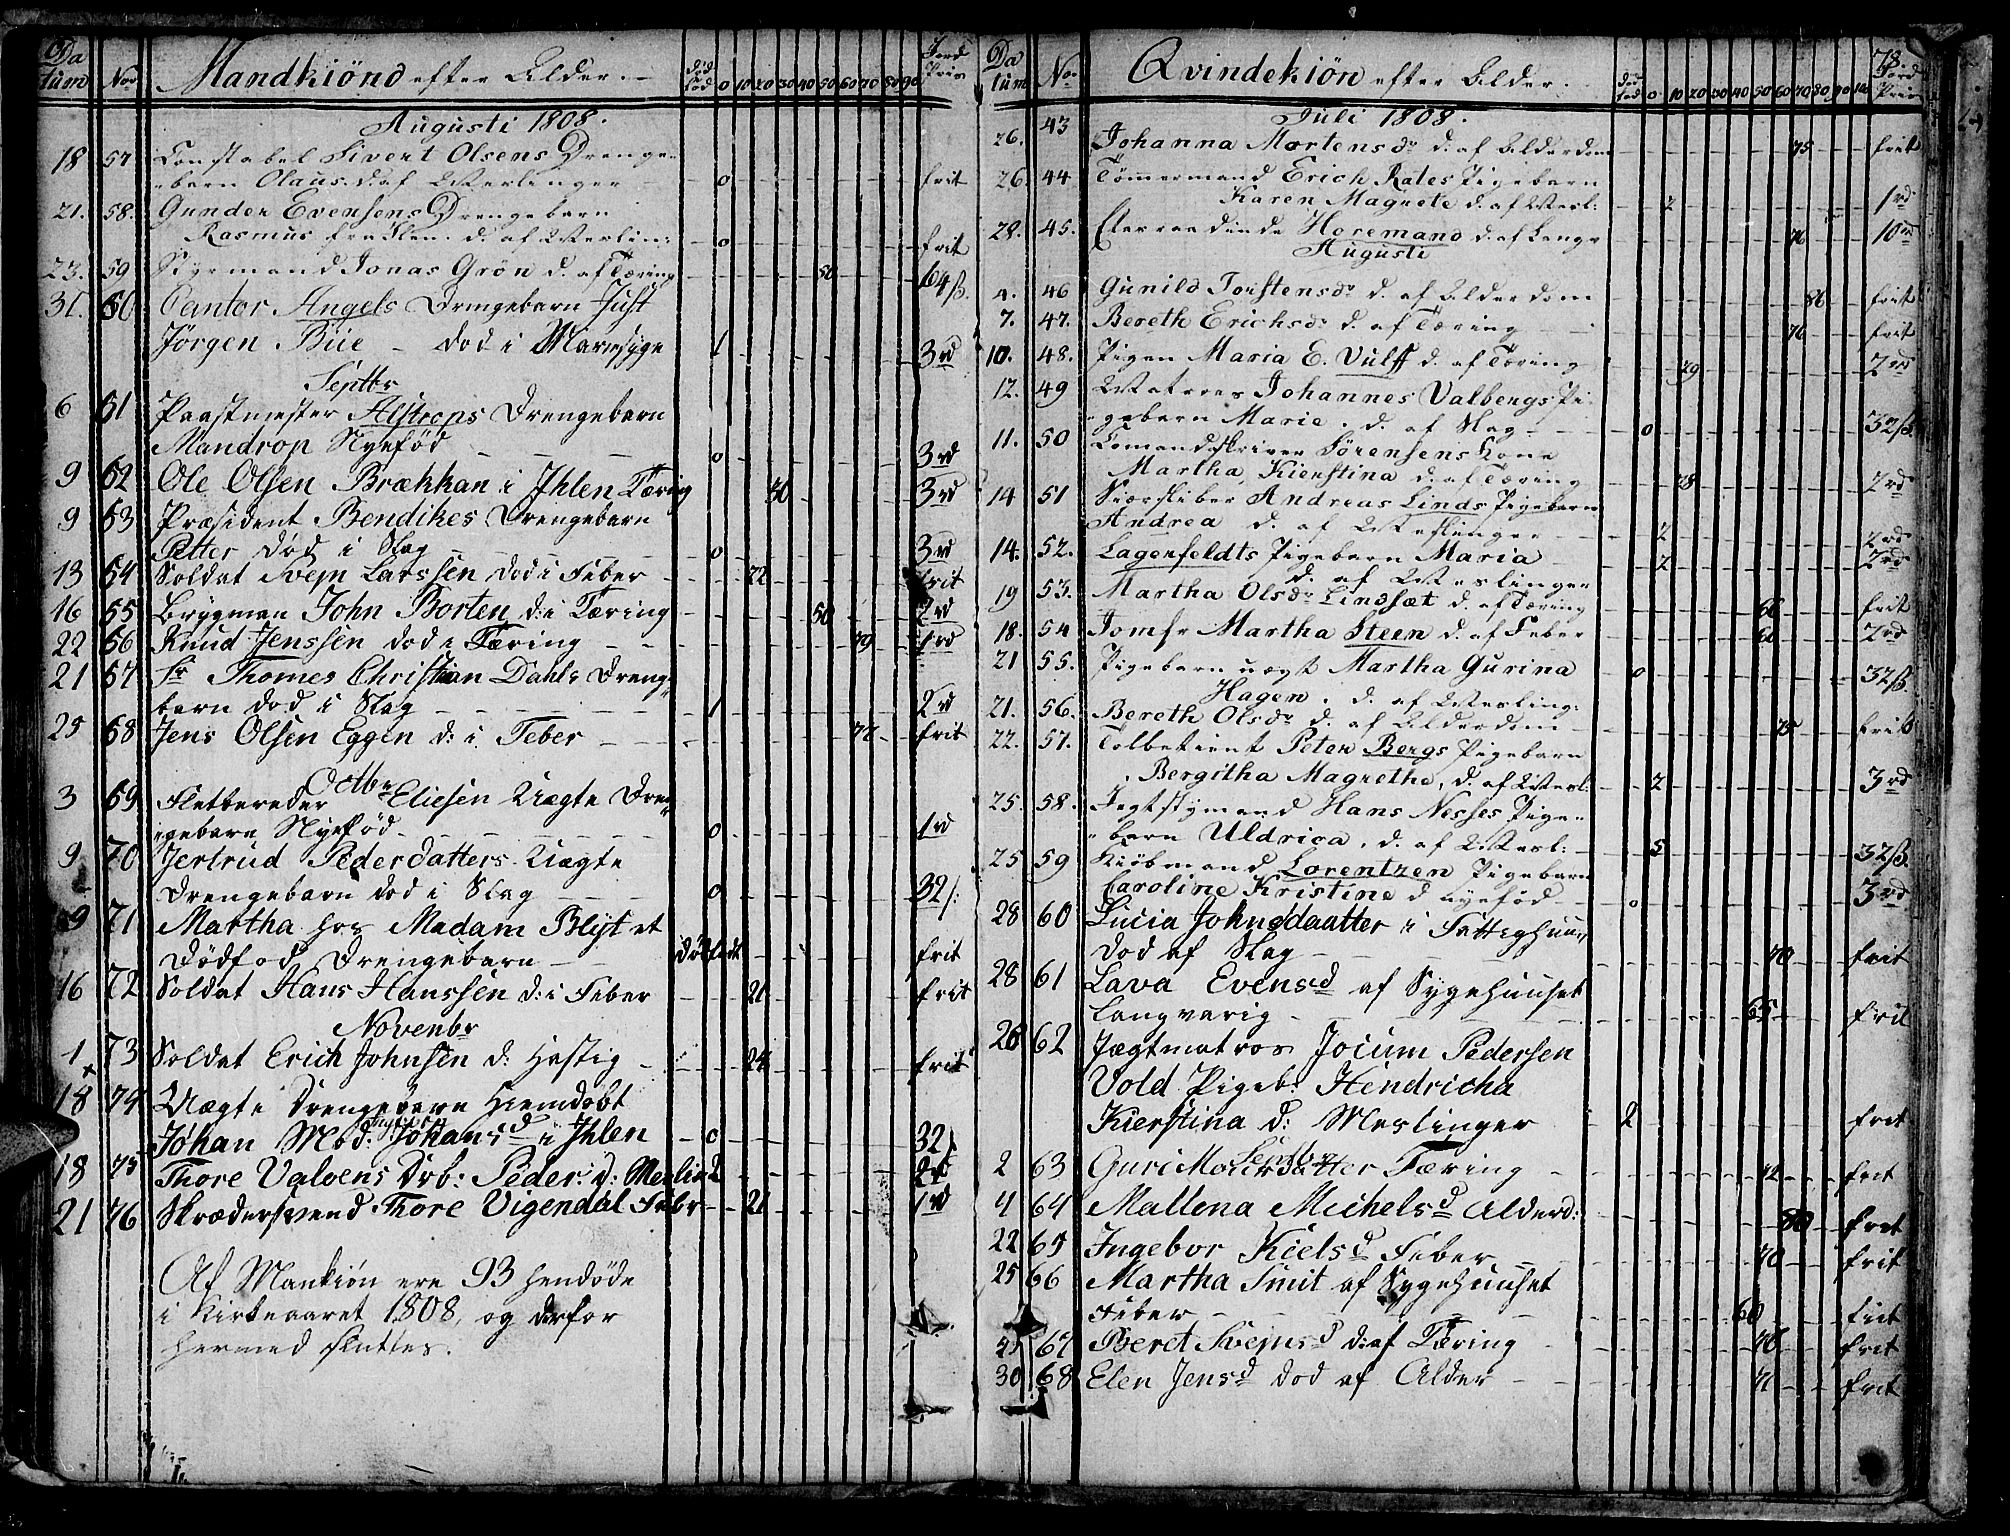 Da
tum
Nor
Mandkiönd efter Alder.
död
fød
0 10 20 30 40 50 60 70 80 90
Jord
Pris
Augusti 1808.
18 57 Constabel Sivert Olsens Drenge-
barn Olaus. d. af Merlinger 0 frit
21. 58. Gunder Evensens Drengebarn
Rasmus fra Ilen. d. af Merlin: 0 frit
23. 59 Styrmand Jonas Grön d. af Tæring 50 64 ß.
31. 60 Cantor Angels Drengebarn Just
Jörgen Büe - död i 1 3 rd
Septbr
6 61 Paastmester Alstrops Drengebarn
Mandrop Nyefød 0 3 rd
9 62 Ole Olsen Brækhan i Ihlen Tæring 30 3 rd
9 63 Præsident Bendikes Drengebarn
Petter död i Slag 0 3 rd
13 64 Soldat Svejn Larssen död i Feber 22 frit
16 65 Brygman John Borten d: i Tæring 50 2 rd
22 66 Knud Jenssen död i Tæring 79 1 rd
21 67 Hr Thomes Christian Dahls Dreng-
barn död i Slag 1 2 rd
25 68 Jens Olsen Eggen d: i Feber 77 frit
Octbr
3 69 Fletbereder Eliesen Uægte Dren
gebarn Nyefød 0 1 rd
9 70 Jertrud Pedersdatters Uægte
Drengebarn död i Slag 0 32 ß.
9 71 Martha hos Madam Blyt et
Dödfød Drengebarn dødfødt frit
16 72 Soldat Hans Hanssen d: i Feber 21 frit
Novenbr
1 73 Soldat Erich Johnsen d: Hastig 24 frit
18 74 Uægte Drengebarn Hiemdøbt
Johan Mod: Johansd i Ihlen 0 32
18 75 Thore Valoens Drb: Peder: d: Meslin 2 2 rd
21 76 Skrædersvend Thore Vigendal Feber 21 1 rd
Af Mankiön ere 93 hendöde
i Kirkeaaret 1808, og derfor
hermed sluttes.
78.
Da
tum
No.
Qvindekiön efter Alder.
död
fød
0 10 20 30 40 50 60 70 80 90 100
Jord
Pris
Juli 1808.
26. 43 Johanna Mortensdr d. af Alderdom 75 frit
26. 44 Tömmermand Erich Rates Pigebarn
Karen Magrete d. af Mesl: 2 1 rd
28. 45. Horemand d. af 76 10 rd
Augusti
4. 46 Gunild Torstensdr d. af Alderdom 86 frit
7. 47. Bereth Erichsdr d. af Tæring 76 frit
10. 48. Pigen Maria E. Vulff d. af Tæring 29 2 rd
12. 49 Matros Johannes Valbergs Pi-
gebarn Marie. d. af Slag 0 32 ß.
11. 50 Comandskriver Sörensens Kone
Martha Kierstina d. af Tæring 28 2 rd
14 51 Andreas Linds Pigebarn
Andrea d. af Meslinger 2 2 rd
14. 52. Lagenfeldts Pigebarn Maria 2 2 rd
d. af Meslinger
19 53. Martha Olsdr Lindsæt d. af Tæring 66 frit
18. 54 Jomfr Martha Steen d. af Feber 60 2 rd
21 55. Pigebarn uægt Martha Gurina
Hagen. d. af Mesling: 0 32 ß.
21. 56. Bereth Olsdr d. af Alderdom 75 frit
22. 57. Tolbetient Peter Bergs Pigebarn
Bergitha Magrethe, d. af Mesl: 2 3 rd
25. 58. Jegtstyrmand Hans Nesses Pige-
barn Uldrica. d. af Mesl: 5 32 ß.
25 59 Kiöbmand Lorentzen Pigebarn
Caroline Kristine d nyefød 0 3 rd
28 60 Lucia Johnsdaatter i Fattighuus
död af Slag 70 frit
28 61 Lava Evensd af Sygehuuset
Langvarig 65 frit
28 62 Jægtmatros Jocum Pedersen
Vold Pigeb: Hendricha
Kierstina d: Meslinger 2 frit
Septbr
2 63 Guri Tæring 72 frit
4 64 Mallena Michelsd Alderd: 80 frit
22 65 Ingebor Kielsd Feber 70 frit
25 66 Martha Smit af Sygehuuset
Feber 60 frit
67 Beret Svejnsd d: af Tæring 70 frit
30 68 Elen Jensd död af Alder 71 frit